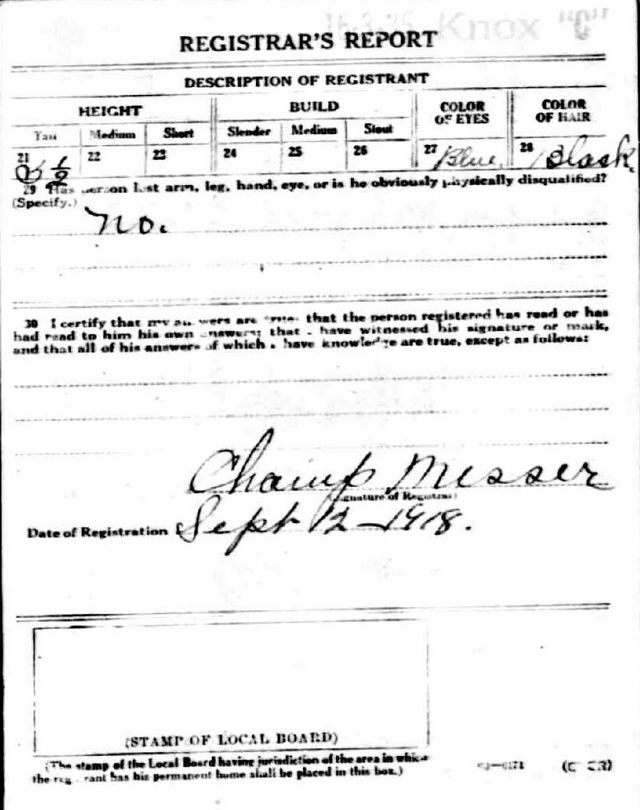 16-3-25 Knox "C"
REGISTRAR'S REPORT
DESCRIPTION OF REGISTRANT
HEIGHT BUILD COLOR OF EYES COLOR OF HAIR
Tall Medium Short Slender Medium Stout
21 22 23 24 25 26 27 Blue 28 Black.
29 Has person lost arm, leg, hand, eye, or is he obviously physically disqualified?
(Specify.)
No.
30 I certify that my answers are true; that the person registered has read or has
had read to him his own answers; that I have witnessed his signature or mark,
and that all of his answers of which I have knowledge are true, except as follows:
Champ Messer
(Signature of Registrar)
Date of Registration Sept 12-1918.
(STAMP OF LOCAL BOARD)
(The stamp of the Local Board having jurisdiction of the area in which
the registrant has his permanent home shall be placed in this box.)